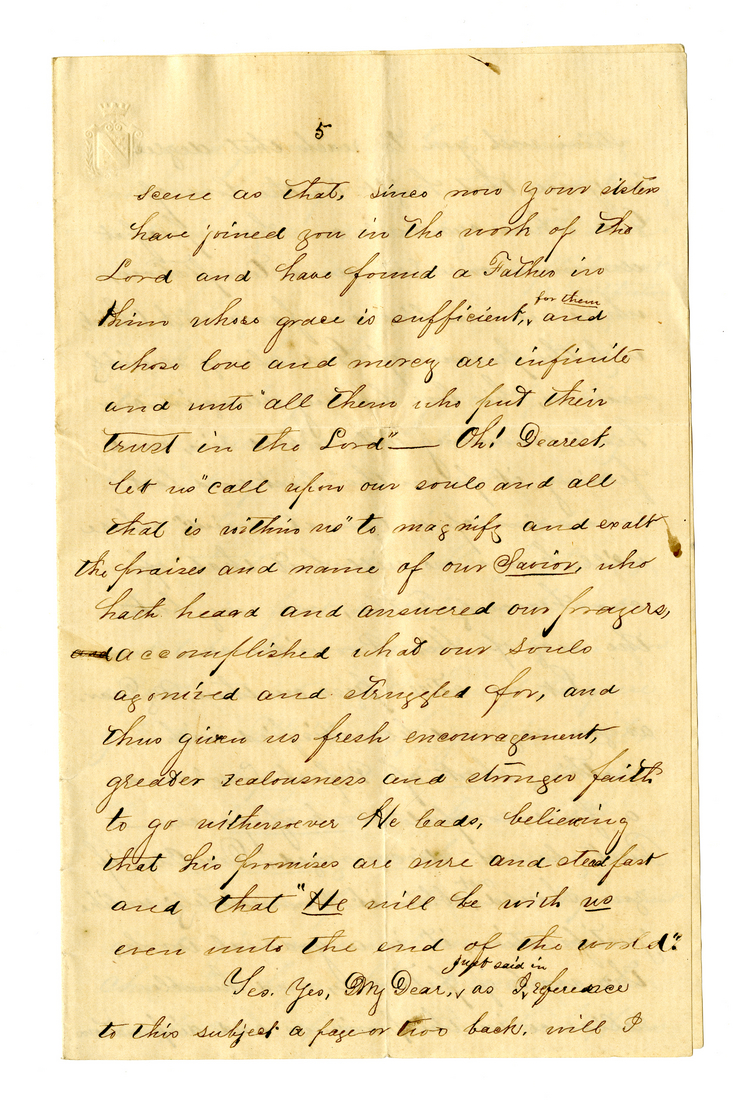 5
scene as that, since now your sisters
have joined you in the work of the
Lord and have found a Father in
for them
him whose grace is sufficient, and
whose love and mercy are infinite
and unto "all them who put their
trust in the Lord" — Oh! Dearest,
let us "call upon our souls and all
that is within us" to magnify and exalt
the praises and name of our Savior, who
hath heard and answered our prayers,
and accomplished what our souls
agonized and struggled for, and
thus given us fresh encouragement,
greater zealousness and stronger faith
to go withersoever He leads, believing
that his promises are sure and steadfast
and that "He will be with us
even unto the end of the world."
just said in
Yes. Yes, My Dear, as I reference
to this subject a page or two back, will I